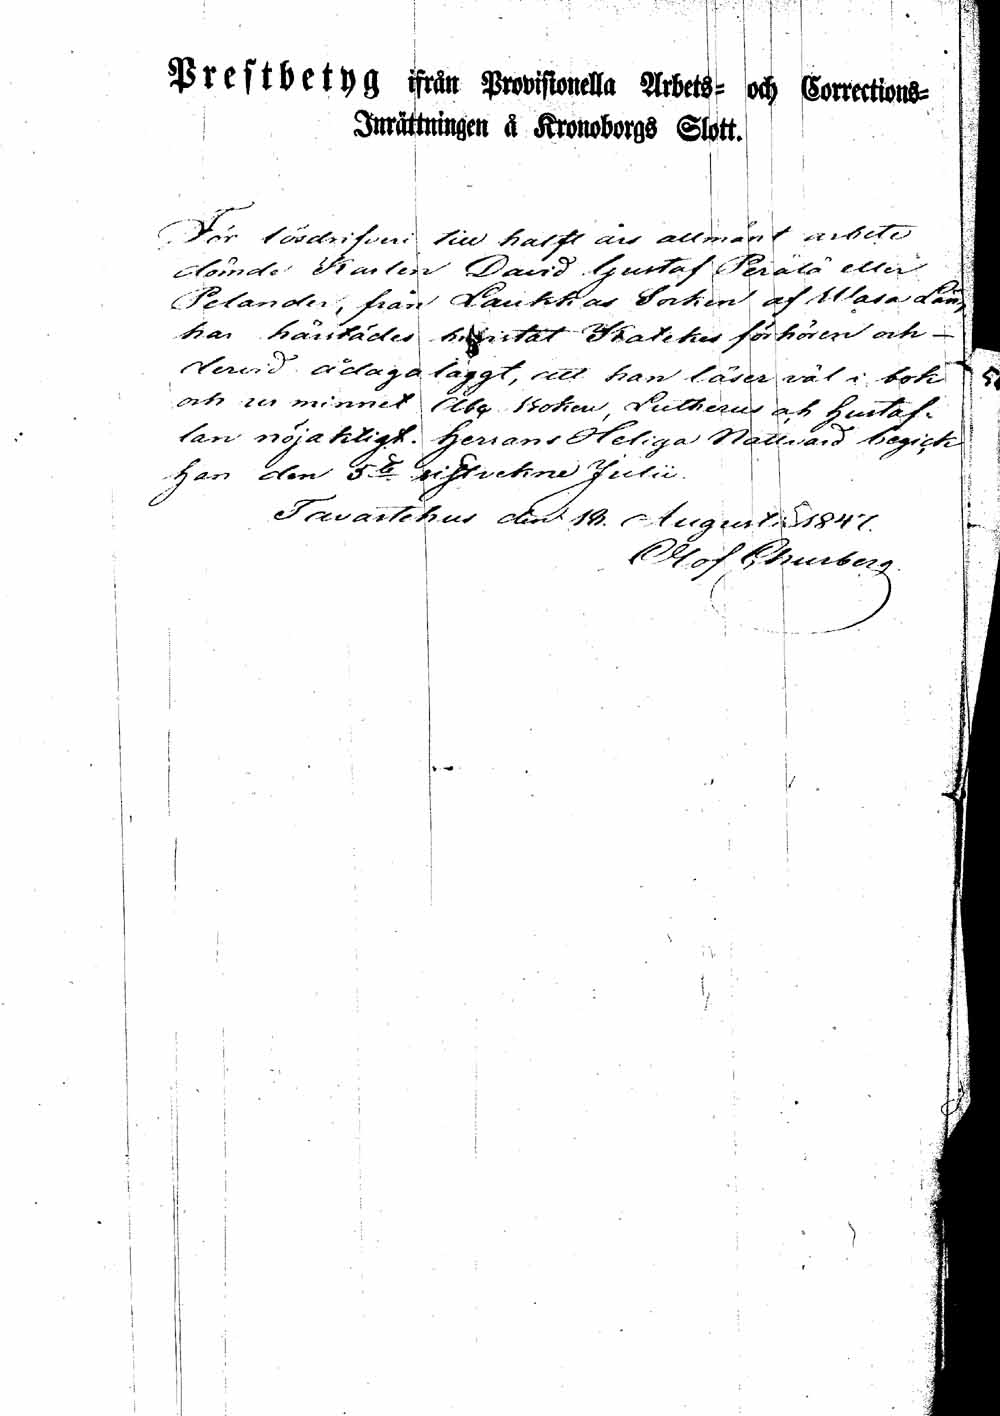 Prestbetyg ifrån Provisionella Arbets- och Corrections-
Inrättningen å Kronoborgs Slott.
För lösdrifveri till halft års allmänt arbete
dömde Karlen David Gustaf Perälä eller
Pelander, från Laukkas Socken af Wasa Län,
har härstädes bevistat Kateches förhören och –
dervid ådagalaggt, att han läser väl i bok
och ur minnet Abc Boken, Lutherus och
lan nöjaktigt. Herrans Heliga Nattvard begick
han den 5te sistvekne Julii.
Tavastehus den 18. Augusti 1847.
Olof Churberg.